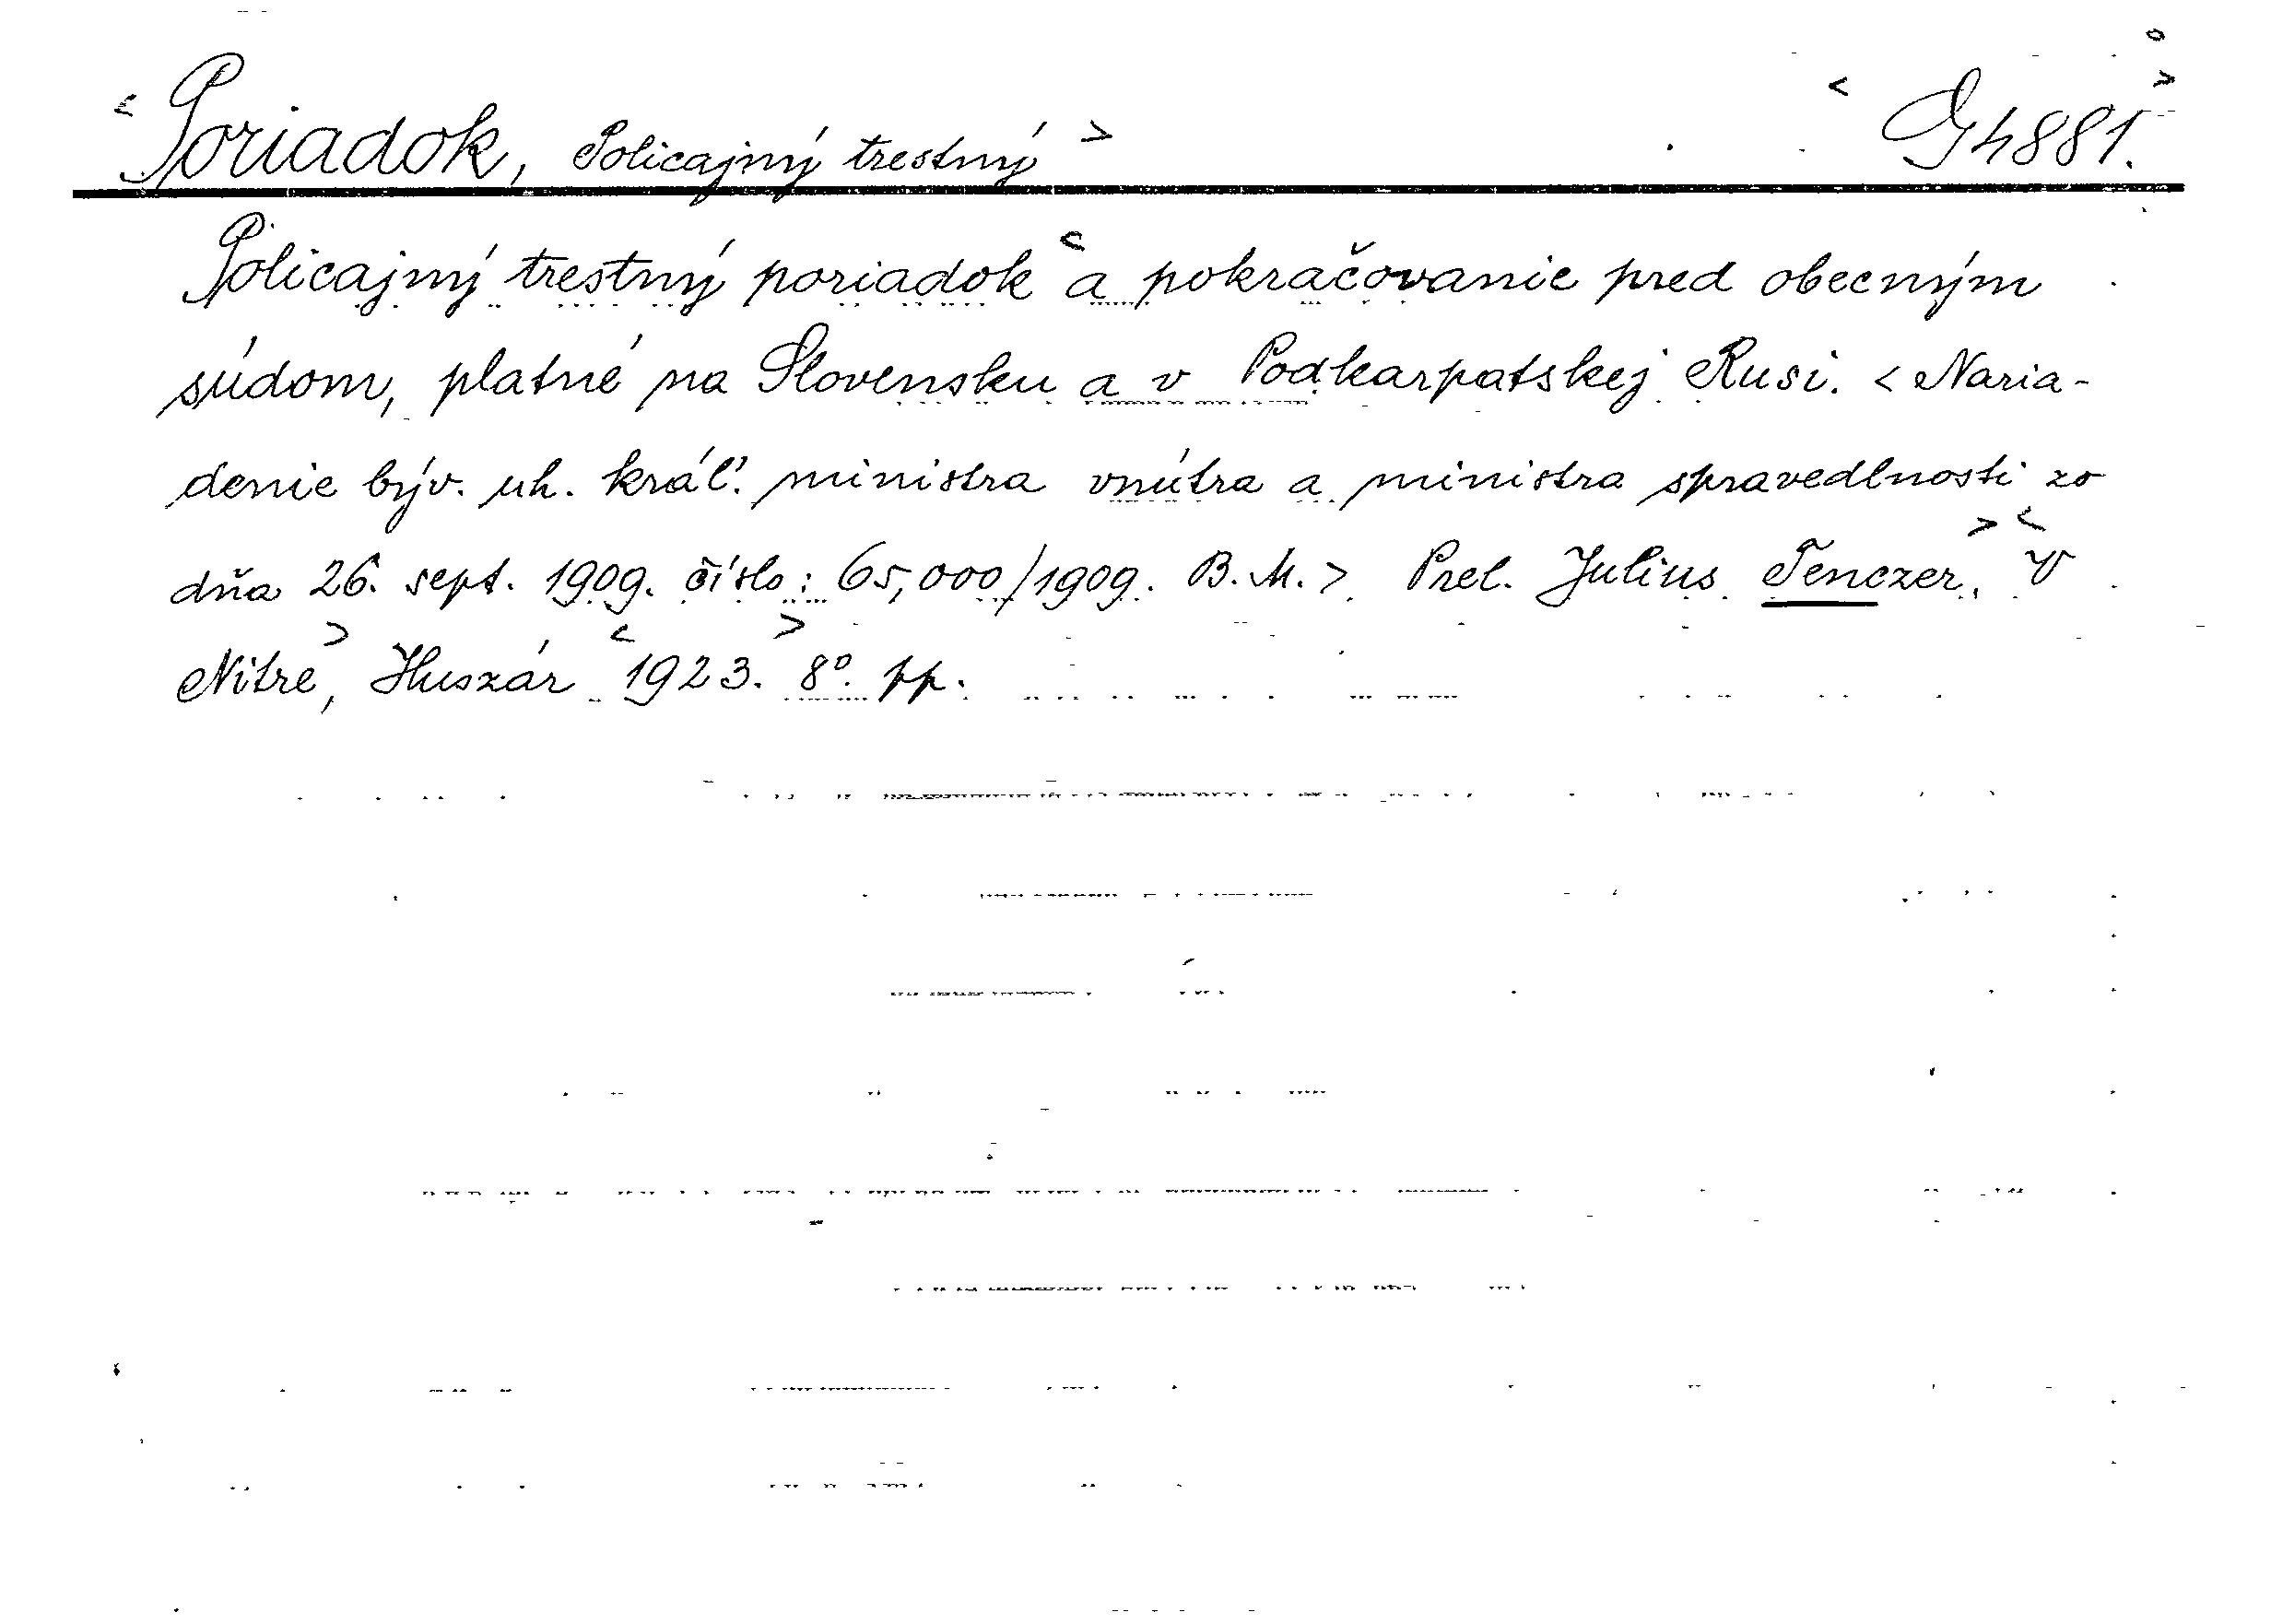 < Poriadok, Policajný trestný > < G 4881. >
Policajný trestný poriadok < a pokračovanie pred obecným
súdom, platné na Slovensku a v Podkarpatskej Rusi. < Naria-
denie býv. uh. kráľ. ministra vnútra a ministra spravedlnosti zo
dňa 26. sept. 1909. číslo: 65,000/1909. B. M. > Prel. Julius Tenczer. > < V
Nitre, > Huszár < 1923. > 8°. pp.